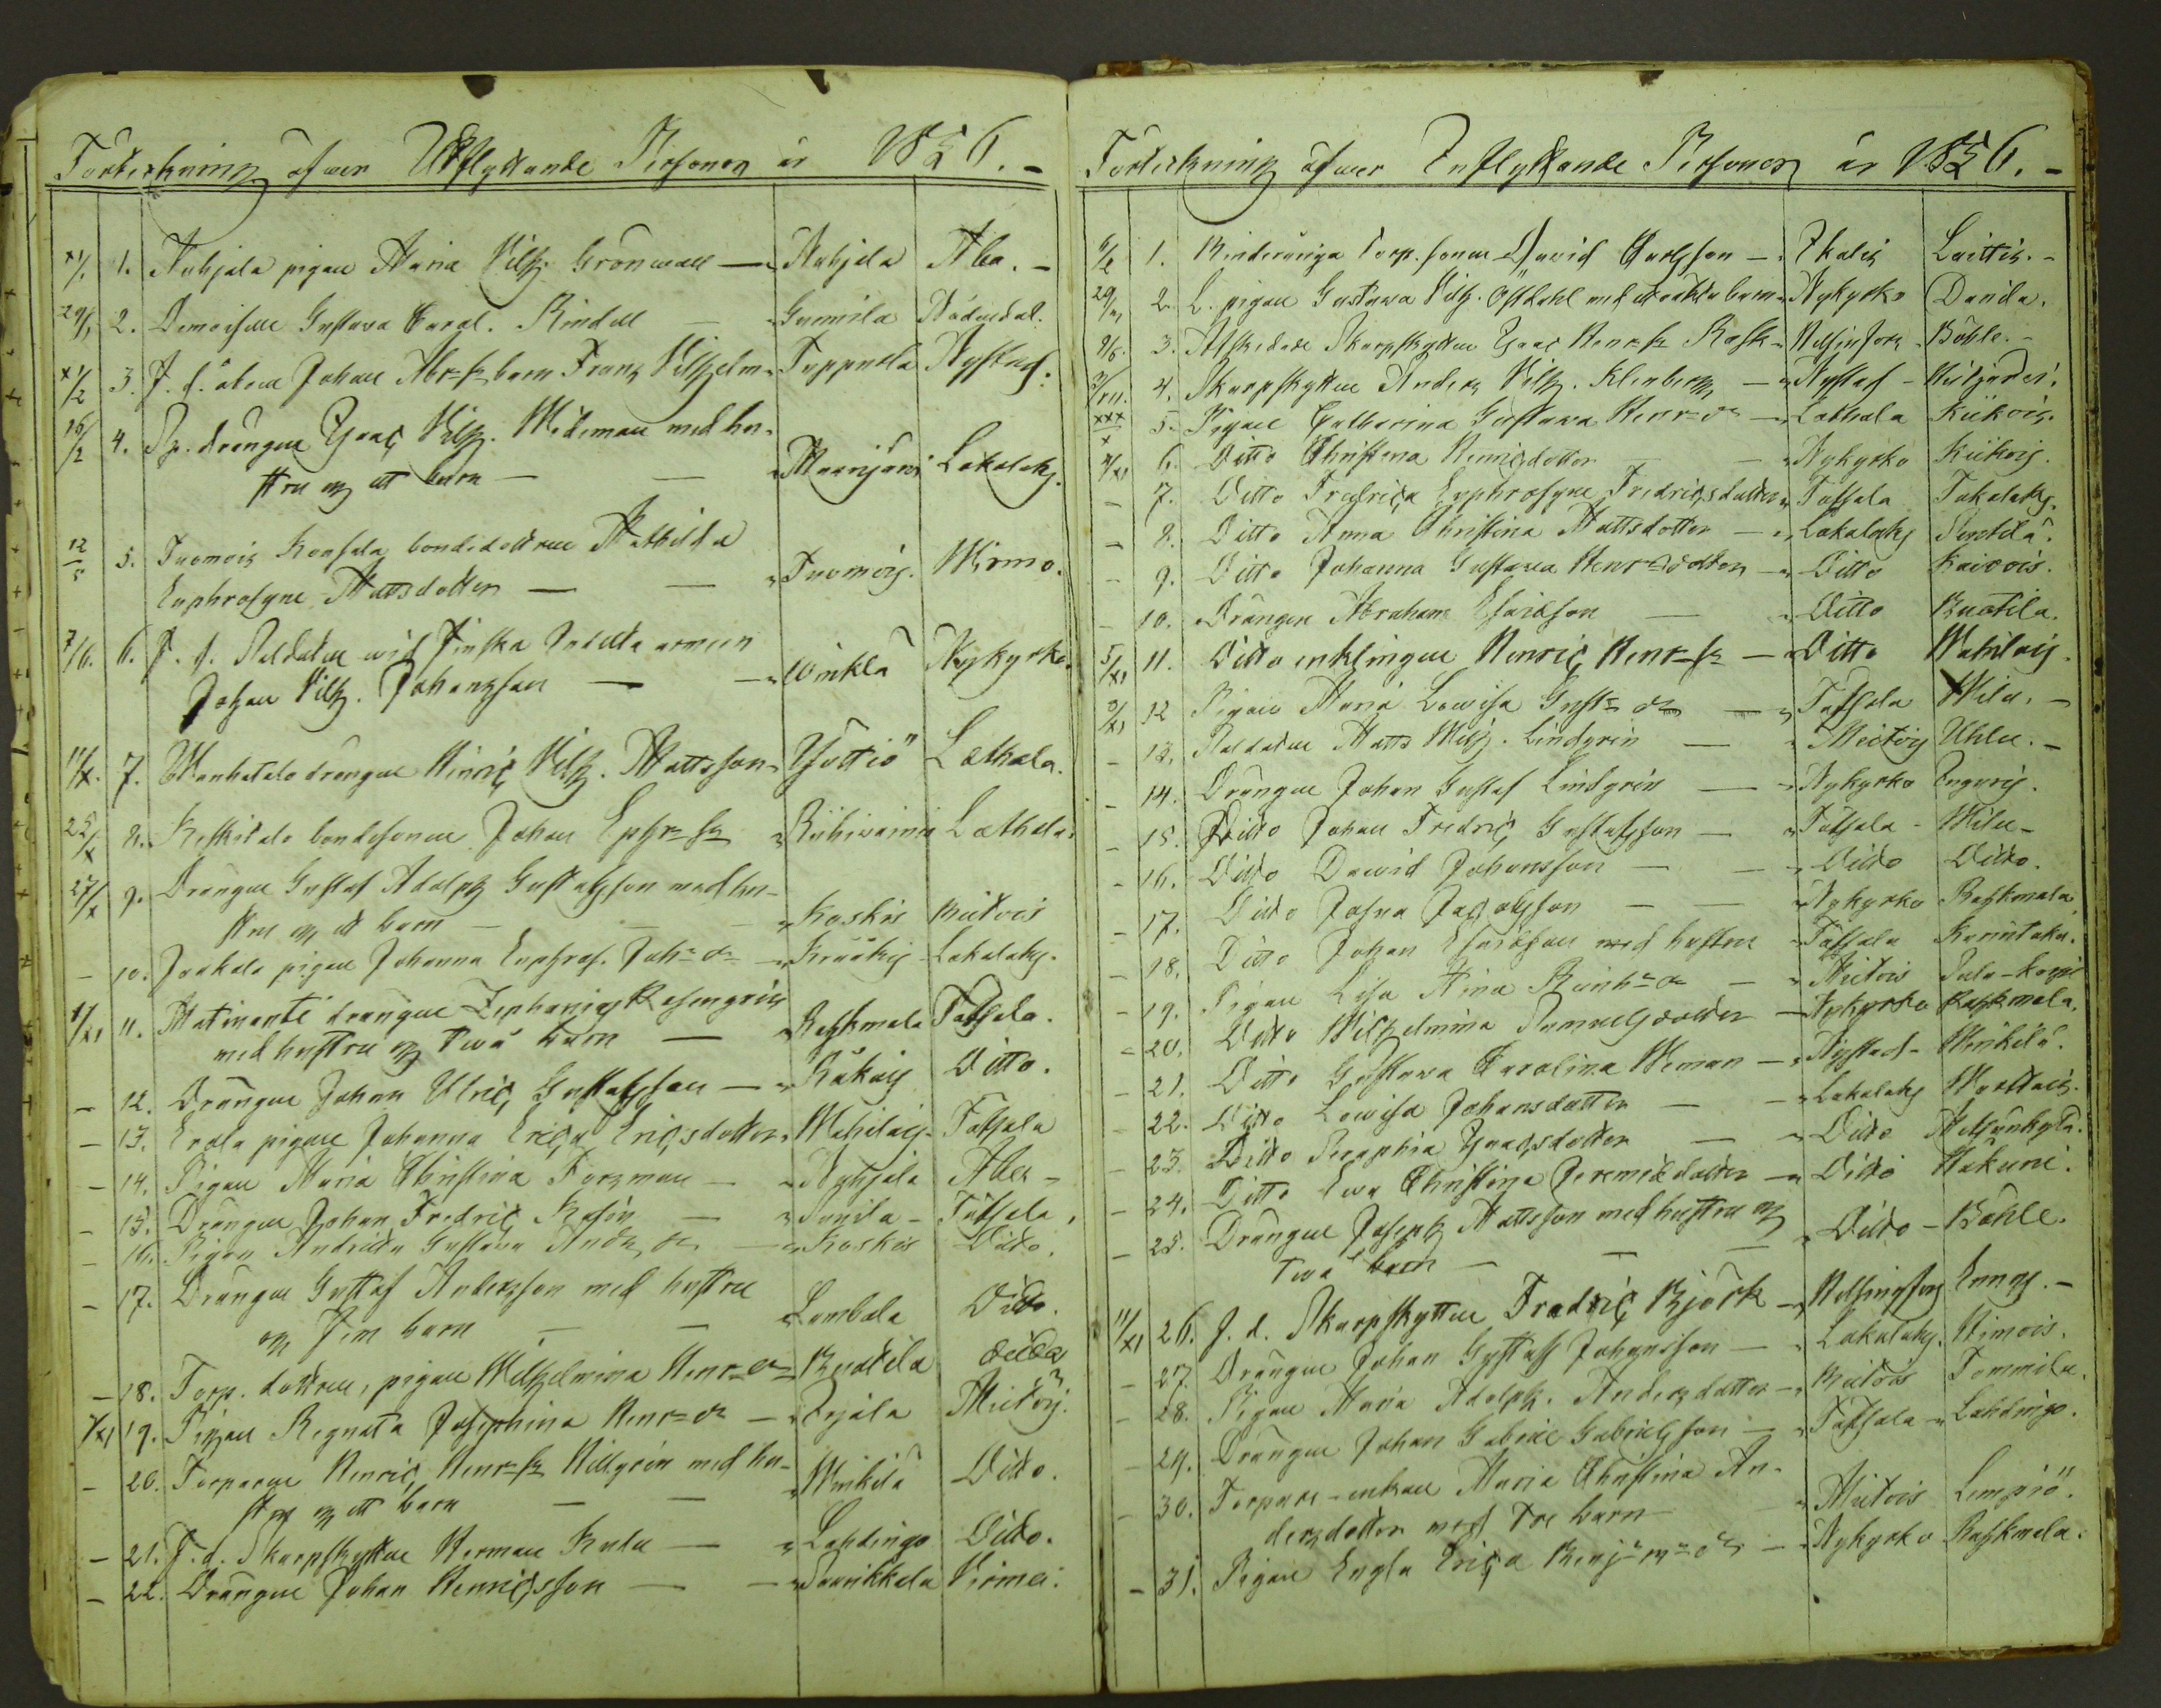 Förteckning öfwer Utflyttande Personer år 1856.
11/1 1. Nuhjala pigan Maria Vilh. Grönwall — Nuhjala Åbo.
29/1 2. Demoiselle Gustava Carol. Rindell — Gunnila Nådendal.
11/2 3. F. d. åboen Johan Abr-s barn Franz Vilhelm Tuppuela Nystad.
16/2 4. Sp. drängen Isaac Vilh. Wideman med hu-
stru och ett barn — — Maanjäni Lokalaks.
12/5 5. Tuomois Kensala bondedottren Mathilda
Euphrosyne Mattsdotter — — Tuomois. Wirmo.
7/6. 6. F. d. Soldaten wid Finska Indelta armeen
Johan Vilh. Johansson — — Winkla Nykyrko.
11/X. 7. Wanhatalo drängen Henric Vilh. Mattsson Ysöttiö Lethala.
25/X 8. Keskitalo bondesonen Johan Ephr-s Riihiwainio Lethala.
27/X 9. Drängen Gustaf Adolph Gustafsson med hu-
stru och ett barn — — Koskis Mietois
— 10. Jaakola pigan Johanna Euphros. Joh-dr Lokalaks.
1/XI 11. Matinanti drängen Zephanias Rosengrén
med hustru och twå barn — Raskmala Töfsala.
— 12. Drängen Johan Ulric Gustafsson — Kåkois Ditto.
— 13. Erola pigan Johanna Erica Ericsdotter Wehilais Töfsala
— 14. Pigan Maria Christina Forsman — Nuhjala Åbo
— 15. Drängen Johan Fredric Rosén — Sunila Töfsala.
— 16. Pigan Andrietta Gustava And. dr — Koskis Ditto.
— 17. Drängen Gustaf Andersson med hustru
och fem barn — — Lambola Ditto.
— 18. Torp. dottren, pigan Wilhelmina Henr-dr Buotila ditto
/XI 19. Pigan Regnata Josephina Henr-dr — Mietois.
— 20. Torparen Henric Henr-s Hellgrén med hu-
stru och ett barn — — Winkilä Ditto.
— 21. F. d. Skarpskytten Herman — Lahdingo Ditto.
— 22. Drängen Johan Henricsson — — Saarikkola Virmo.
Förteckning öfwer Inflyttande Personer år 1856.
1. Torp. sonen David Carlsson — Ikalis Laittis.
2. L. pigan Gustawa Vilh. Östdahl med oäkta barn Nykyrko Danila.
3. Afskedade Skarpskytten Isaac Henr-s Rask Helsinfors Böhle.
4. Skarpskytten Anders Vilh. Klenberg — Nystad
5. Pigan Catharina Gustawa Henr-dr — Lethala Kiikois.
6. Ditto Christina Henricsdotter — Nykyrko Kiikois.
— 7. Ditto Fredrica Euphrosyne Fredricsdotter Töfsala
— 8. Ditto Anna Christina Mattsdotter — Lokalaks Pertilä.
— 9. Ditto Johanna Gustava Henr-dotter — Ditto Kaivois.
— 10. Drängen Abraham Esaiasson — Ditto Buotila.
5/XI 11. Ditto enklingen Henric Henr-s — Ditto Wehilais.
12 Pigan Maria Lowisa Gust-dr — Töfsala Wilu.
— 13. Soldaten Matts Wilh. Lindgrén — Mietois Uhlu.
— 14. Drängen Johan Gustaf Lindgrén — Nykyrko Ingeris.
— 15. Ditto Johan Fredric Gustafsson — Töfsala Wilu
— 16. Ditto Dawid Johansson — — Ditto Ditto.
— 17. Ditto Josua Jacobsson — — Nykyrko Raskmala
— 18. Ditto Johan Esaiasson med hustru Töfsala Karintaka.
— 19. Pigan Lisa Stina Reinh-dr — Mietois
— 20. Ditto Wilhelmina Samuelsdotter — Nykyrko Raskmala.
— 21. Ditto Gustawa Carolina Weman — Nystad Winkilä.
— 22. Ditto Lowisa Johansdotter — Lokalaks
— 23. Ditto Seraphia Isaacsdotter — — Ditto
— 24. Ditto Ewa Christina Jeremiædotter — Ditto Hakuni.
— 25. Drängen Joseph Mattsson med hustru och
twå barn — — Ditto Böhle.
11/XI 26. F. d. Skarpskytten Fredric Björk — Helsingfors
— 27. Drängen Johan Gustaf Johansson — Lokalaks. Himois.
— 28. Pigan Maria Adolph. Andersdotter — Mietois Tommila.
— 29. Drängen Johan Gabriel Gabrielsson — Töfsala Lahdingo.
— 30. Torpare-enkan Maria Christina An-
dersdotter med tre barn — Mietois Lempiö.
— 31. Pigan Engla Erica Benj-m-dr — Nykyrko Raskmala.